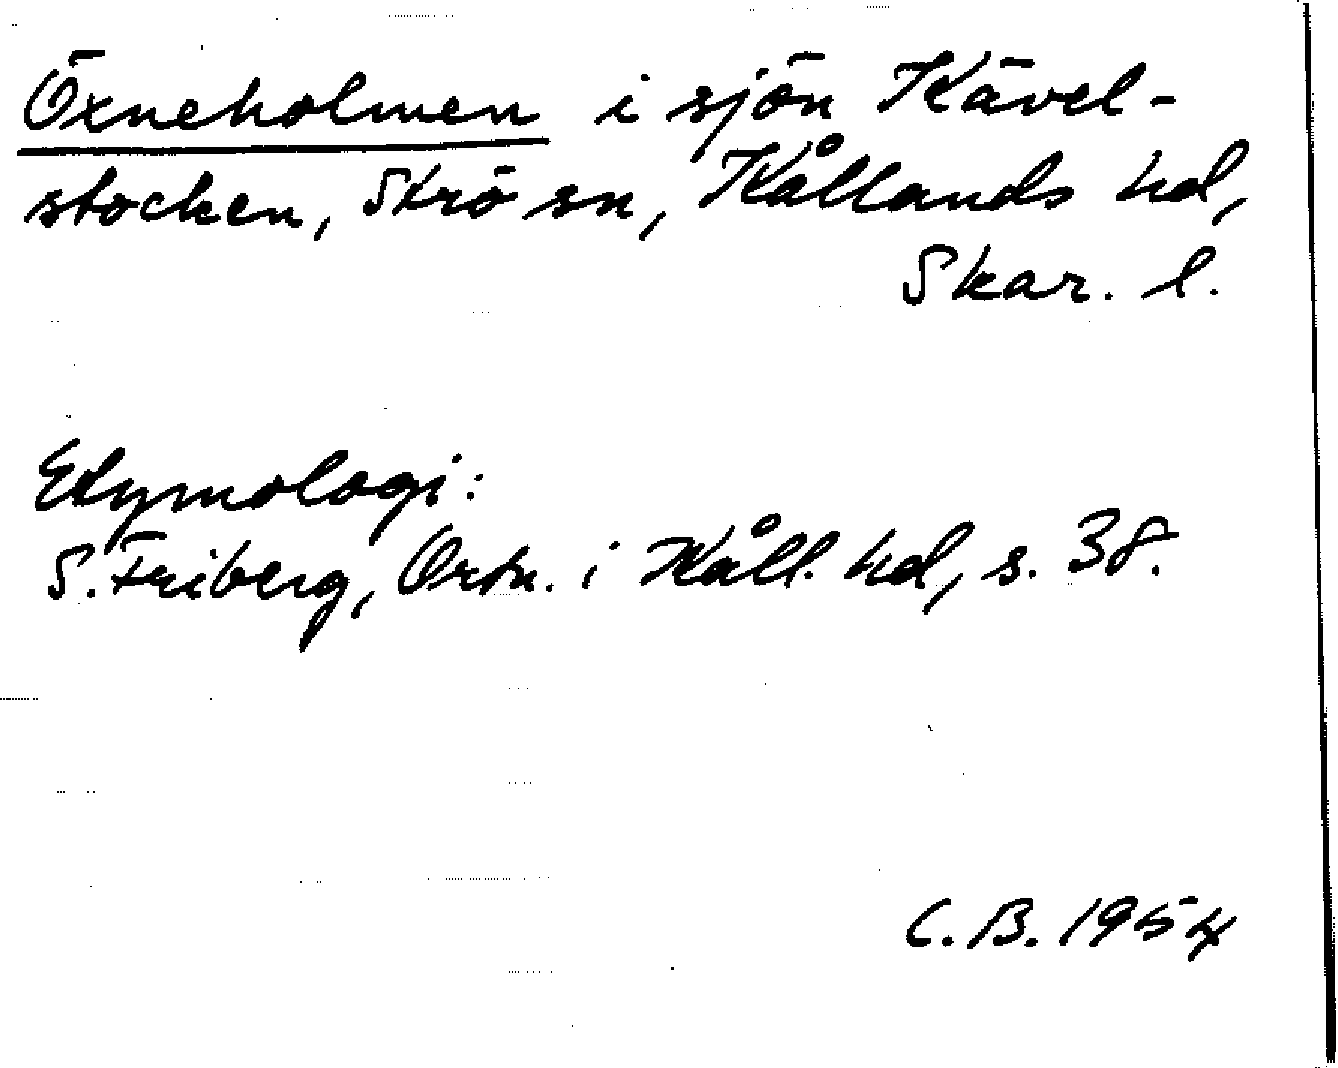 Öxneholmen i sjön Kävel-
stocken, Strö sn, Kållands hd,
Skar. l.
Etymologi:
S. Friberg, Ortn. i Kåll. hd, s. 38.
C. B. 1954